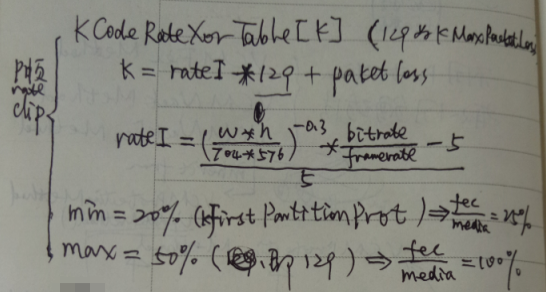 KCodeRateXorTable[k] (129为kMaxPacketLoss)
k = rateI * 129 + paket loss
rate
clip
rateI = (w*h / 704*576)^-0.3 * bitrate / framerate - 5
5
min = 20% (kFirstPartitionProt) ⇒ fec / media = 25%
max = 50% (即129) ⇒ fec / media = 100%